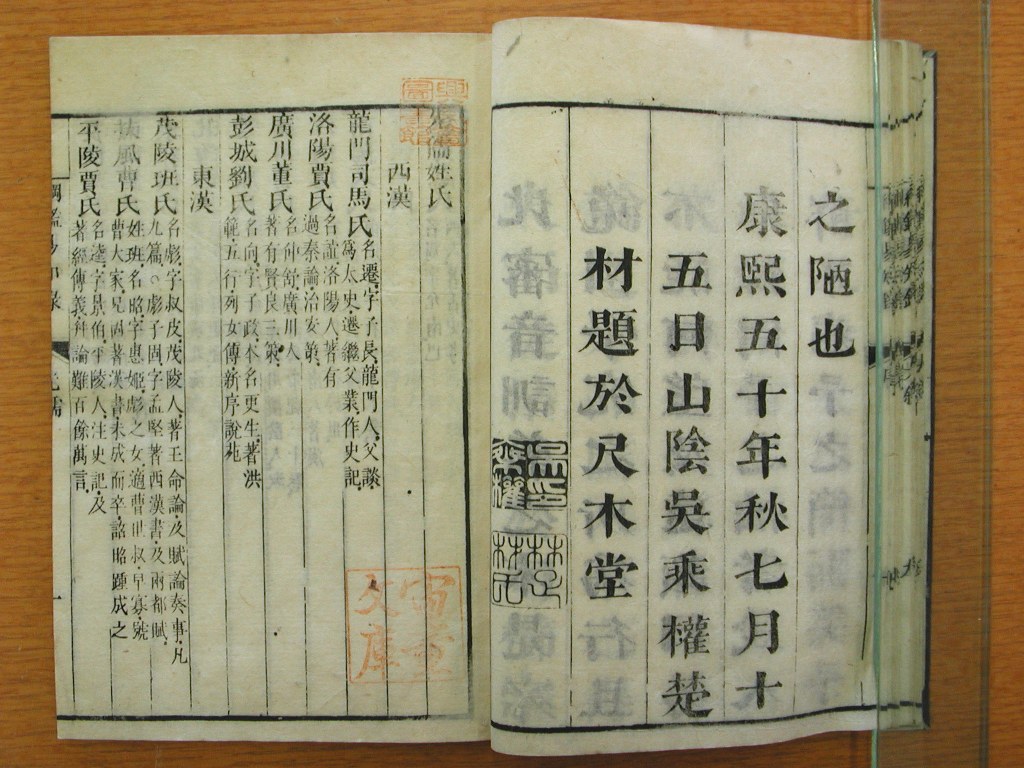 之陋也
康熙五十年秋七月十
五日山陰吳乘權楚
材題於尺木堂
吳乘權印
姓氏
西漢
龍門司馬氏名遷字子長龍門人父談
爲太史遷繼父業作史記
洛陽賈氏名誼洛陽人著有
過秦論治安策
廣川董氏名仲舒廣川人
著有賢良三策
彭城劉氏名向字子政本名更生著洪
範五行列女傳新序說苑
東漢
茂陵班氏名彪字叔皮茂陵人著王命論及賦論奏事凡
九篇彪子固字孟堅著西漢書及兩都賦
扶風曹氏姓班名昭字惠姬彪之女適曹世叔早寡號
曹大家兄固著漢書未成而卒詔昭踵成之
平陵賈氏名逵字景伯平陵人注史記及
著經傳義詁論難百餘萬言
文庫